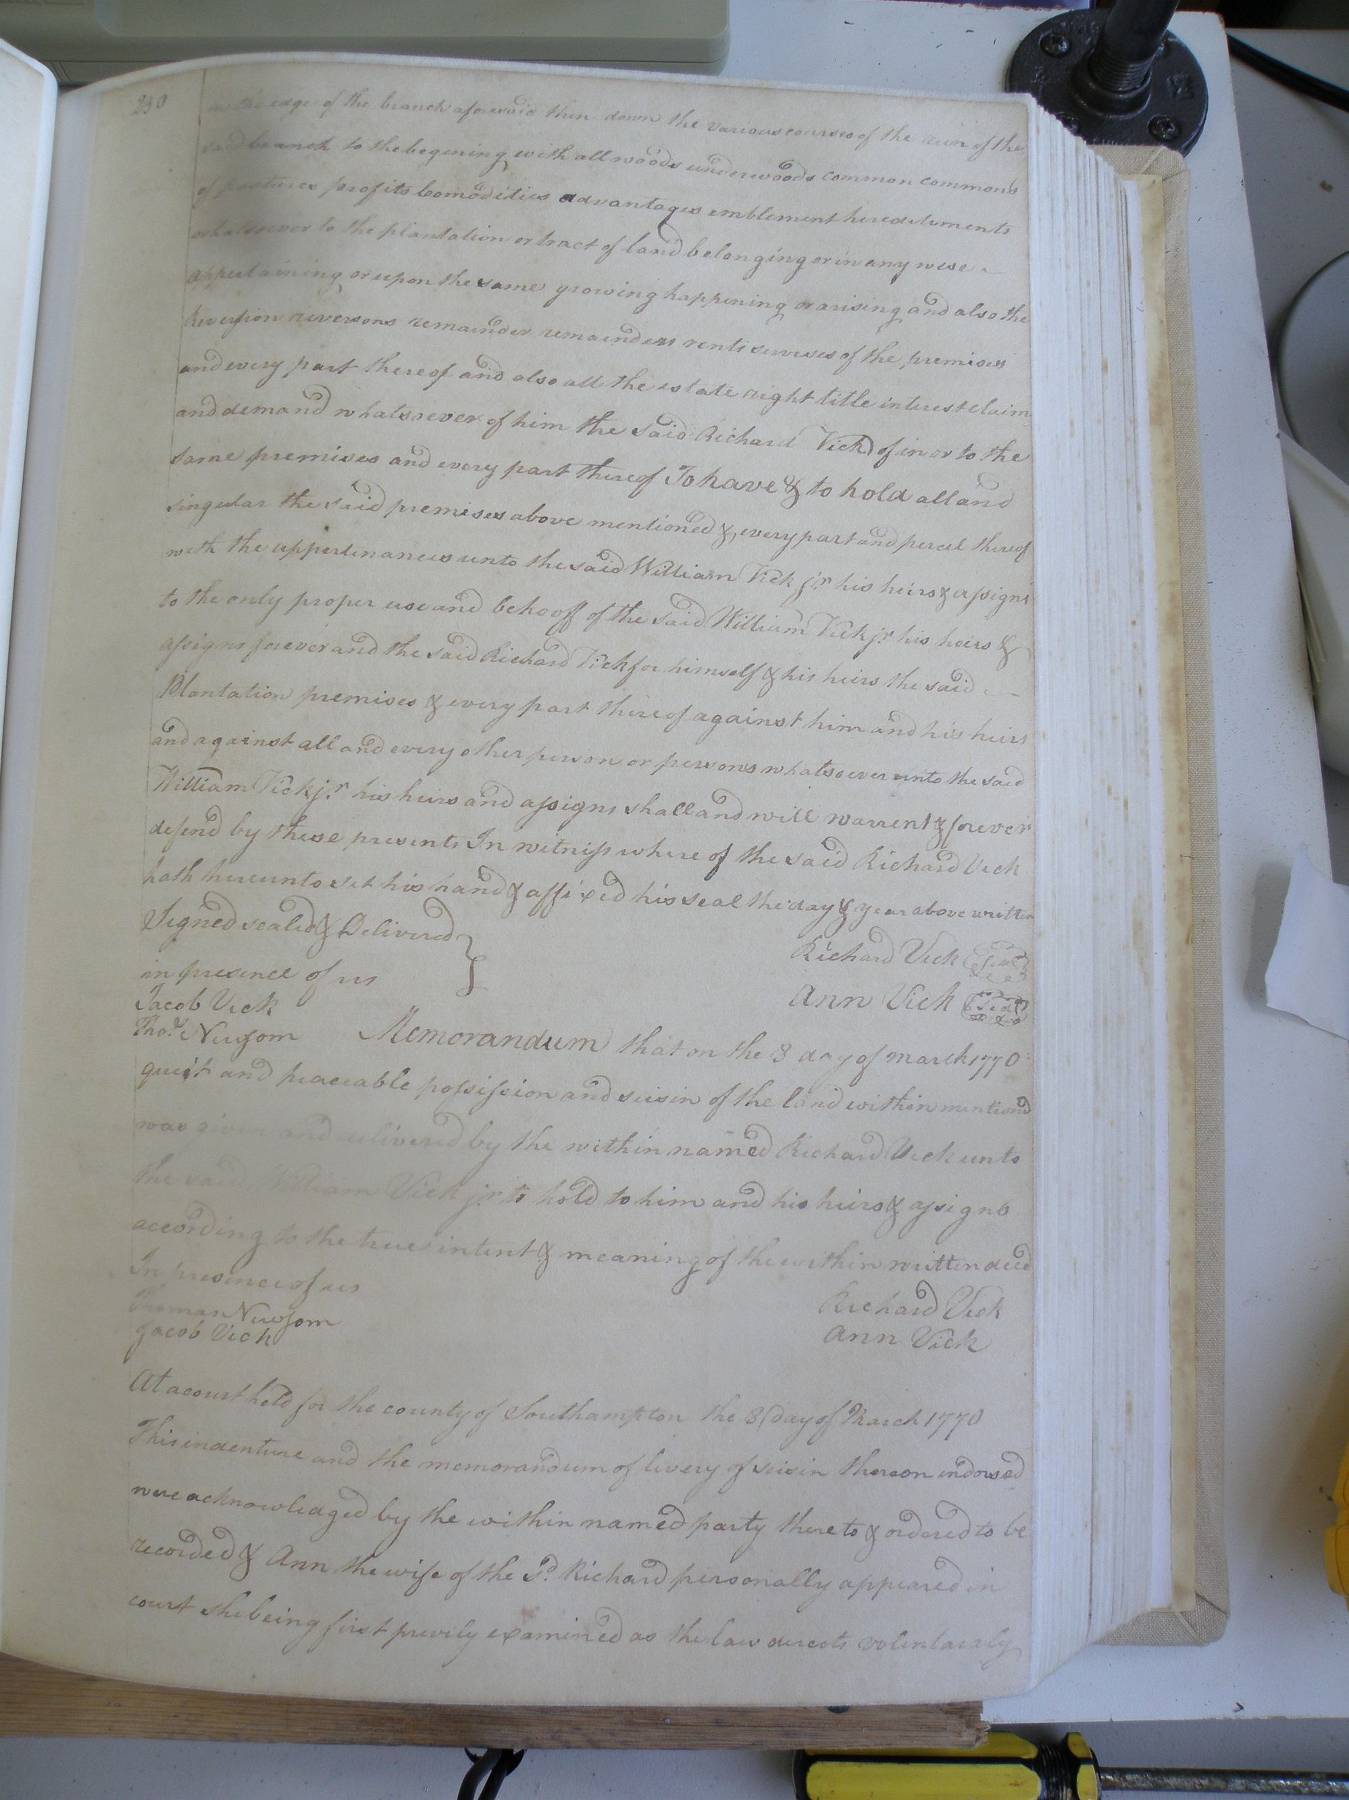 230
the edge of the branch aforesaid then down the various courses of the run of the
said branch to the begening with all woods underwoods common commons
of pastures profits Comodities advantages emblement hereditements
whatsoever to the plantation or tract of land belonging or in any wise
appertaining or upon the same growing happening or arising and also the
Revertion reversons remainder remainders rents servises of the premises
and every part thereof and also all the estate right title interest claim
and demand whatsoever of him the said Richard Vick of in or to the
same premises and every part thereof To have & to hold all and
singular the said premises above mentioned & every part and percel thereof
with the appertinances unto the said William Vick jr his heirs & assigns
to the only proper use and behooff of the said William Vick jr his heirs &
assigns forever and the said Richard Vick for himself & his heirs the said
Plantation premises & every part thereof against him and his heirs
and against all and every other person or persons whatsoever unto the said
William Vick jr his heirs and assigns shall and will warrent & forever
defend by these presents In witness where of the said Richard Vick
hath hereunto set his hand & affixed his seal the day & year above written
Signed sealed & Delivered
Richard Vick Seal
in presence of us
Ann Vick Seal
Jacob Vick
Thos Newsom Memorandum that on the 8 day of march 1770
queit and peaceable possission and seisin of the land within mentioned
was given and delivered by the within named Richard Vick unto
the said William Vick jr to hold to him and his heirs & assigns
according to the true intent & meaning of the within written deed
In presence of us
Richard Vick
Newsom
Ann Vick
Jacob Vick
At a court held for the county of Southampton the 8 day of March 1770
This indenture and the memorandum of livery of seisin thereon indorsed
were acknowledged by the within named party there to & ordered to be
recorded & Ann the wife of the sd Richard personally appeared in
court she being first previly examined as the law directs volentarily